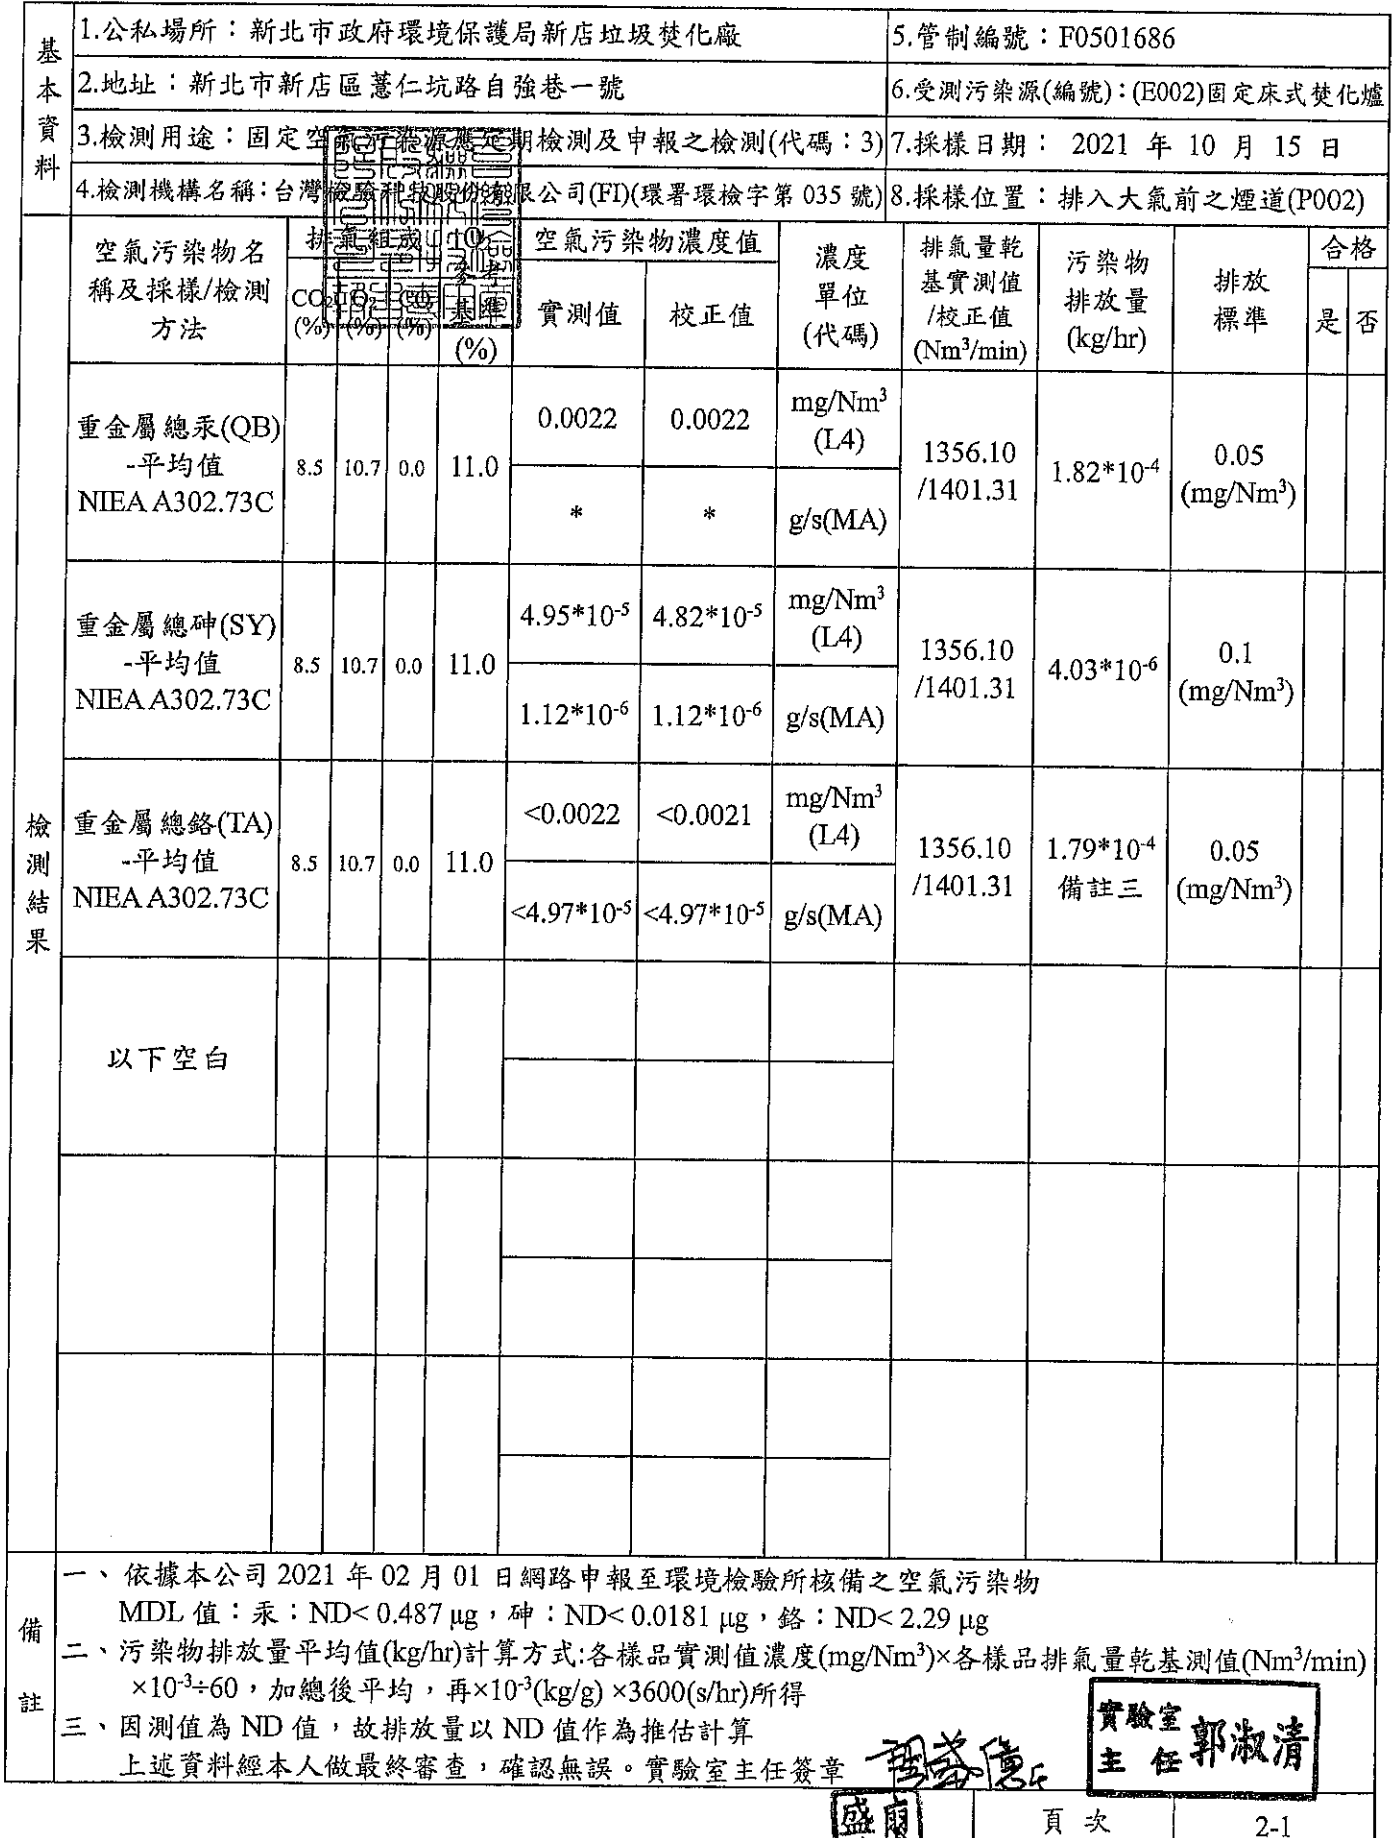 基本資料
1.公私場所：新北市政府環境保護局新店垃圾焚化廠
5.管制編號：F0501686
2.地址：新北市新店區薏仁坑路自強巷一號
6.受測污染源(編號)：(E002)固定床式焚化爐
3.檢測用途：固定空氣污染源應定期檢測及申報之檢測(代碼：3)
7.採樣日期： 2021 年 10 月 15 日
4.檢測機構名稱：台灣檢驗科技股份有限公司(FI)(環署環檢字第 035 號)
8.採樣位置：排入大氣前之煙道(P002)
檢測結果
空氣污染物名
稱及採樣/檢測
方法
排氣組成
CO₂
(%)
O₂
(%)
CO
(%)
O₂
參考
基準
(%)
空氣污染物濃度值
實測值
校正值
濃度
單位
(代碼)
排氣量乾
基實測值
/校正值
(Nm³/min)
污染物
排放量
(kg/hr)
排放
標準
合格
是 否
重金屬總汞(QB)
-平均值
NIEA A302.73C
8.5 10.7 0.0 11.0
0.0022 0.0022 mg/Nm³
(L4)
* * g/s(MA)
1356.10
/1401.31
1.82*10⁻⁴
0.05
(mg/Nm³)
重金屬總砷(SY)
-平均值
NIEA A302.73C
8.5 10.7 0.0 11.0
4.95*10⁻⁵ 4.82*10⁻⁵ mg/Nm³
(L4)
1.12*10⁻⁶ 1.12*10⁻⁶ g/s(MA)
1356.10
/1401.31
4.03*10⁻⁶
0.1
(mg/Nm³)
重金屬總鉻(TA)
-平均值
NIEA A302.73C
8.5 10.7 0.0 11.0
<0.0022 <0.0021 mg/Nm³
(L4)
<4.97*10⁻⁵ <4.97*10⁻⁵ g/s(MA)
1356.10
/1401.31
1.79*10⁻⁴
備註三
0.05
(mg/Nm³)
以下空白
備註
一、依據本公司 2021 年 02 月 01 日網路申報至環境檢驗所核備之空氣污染物
MDL 值：汞：ND< 0.487 μg，砷：ND< 0.0181 μg，鉻：ND< 2.29 μg
二、污染物排放量平均值(kg/hr)計算方式:各樣品實測值濃度(mg/Nm³)×各樣品排氣量乾基測值(Nm³/min)
×10⁻³÷60，加總後平均，再×10⁻³(kg/g) ×3600(s/hr)所得
三、因測值為 ND 值，故排放量以 ND 值作為推估計算
上述資料經本人做最終審查，確認無誤。實驗室主任簽章
實驗室
主 任 郭淑清
頁 次 2-1